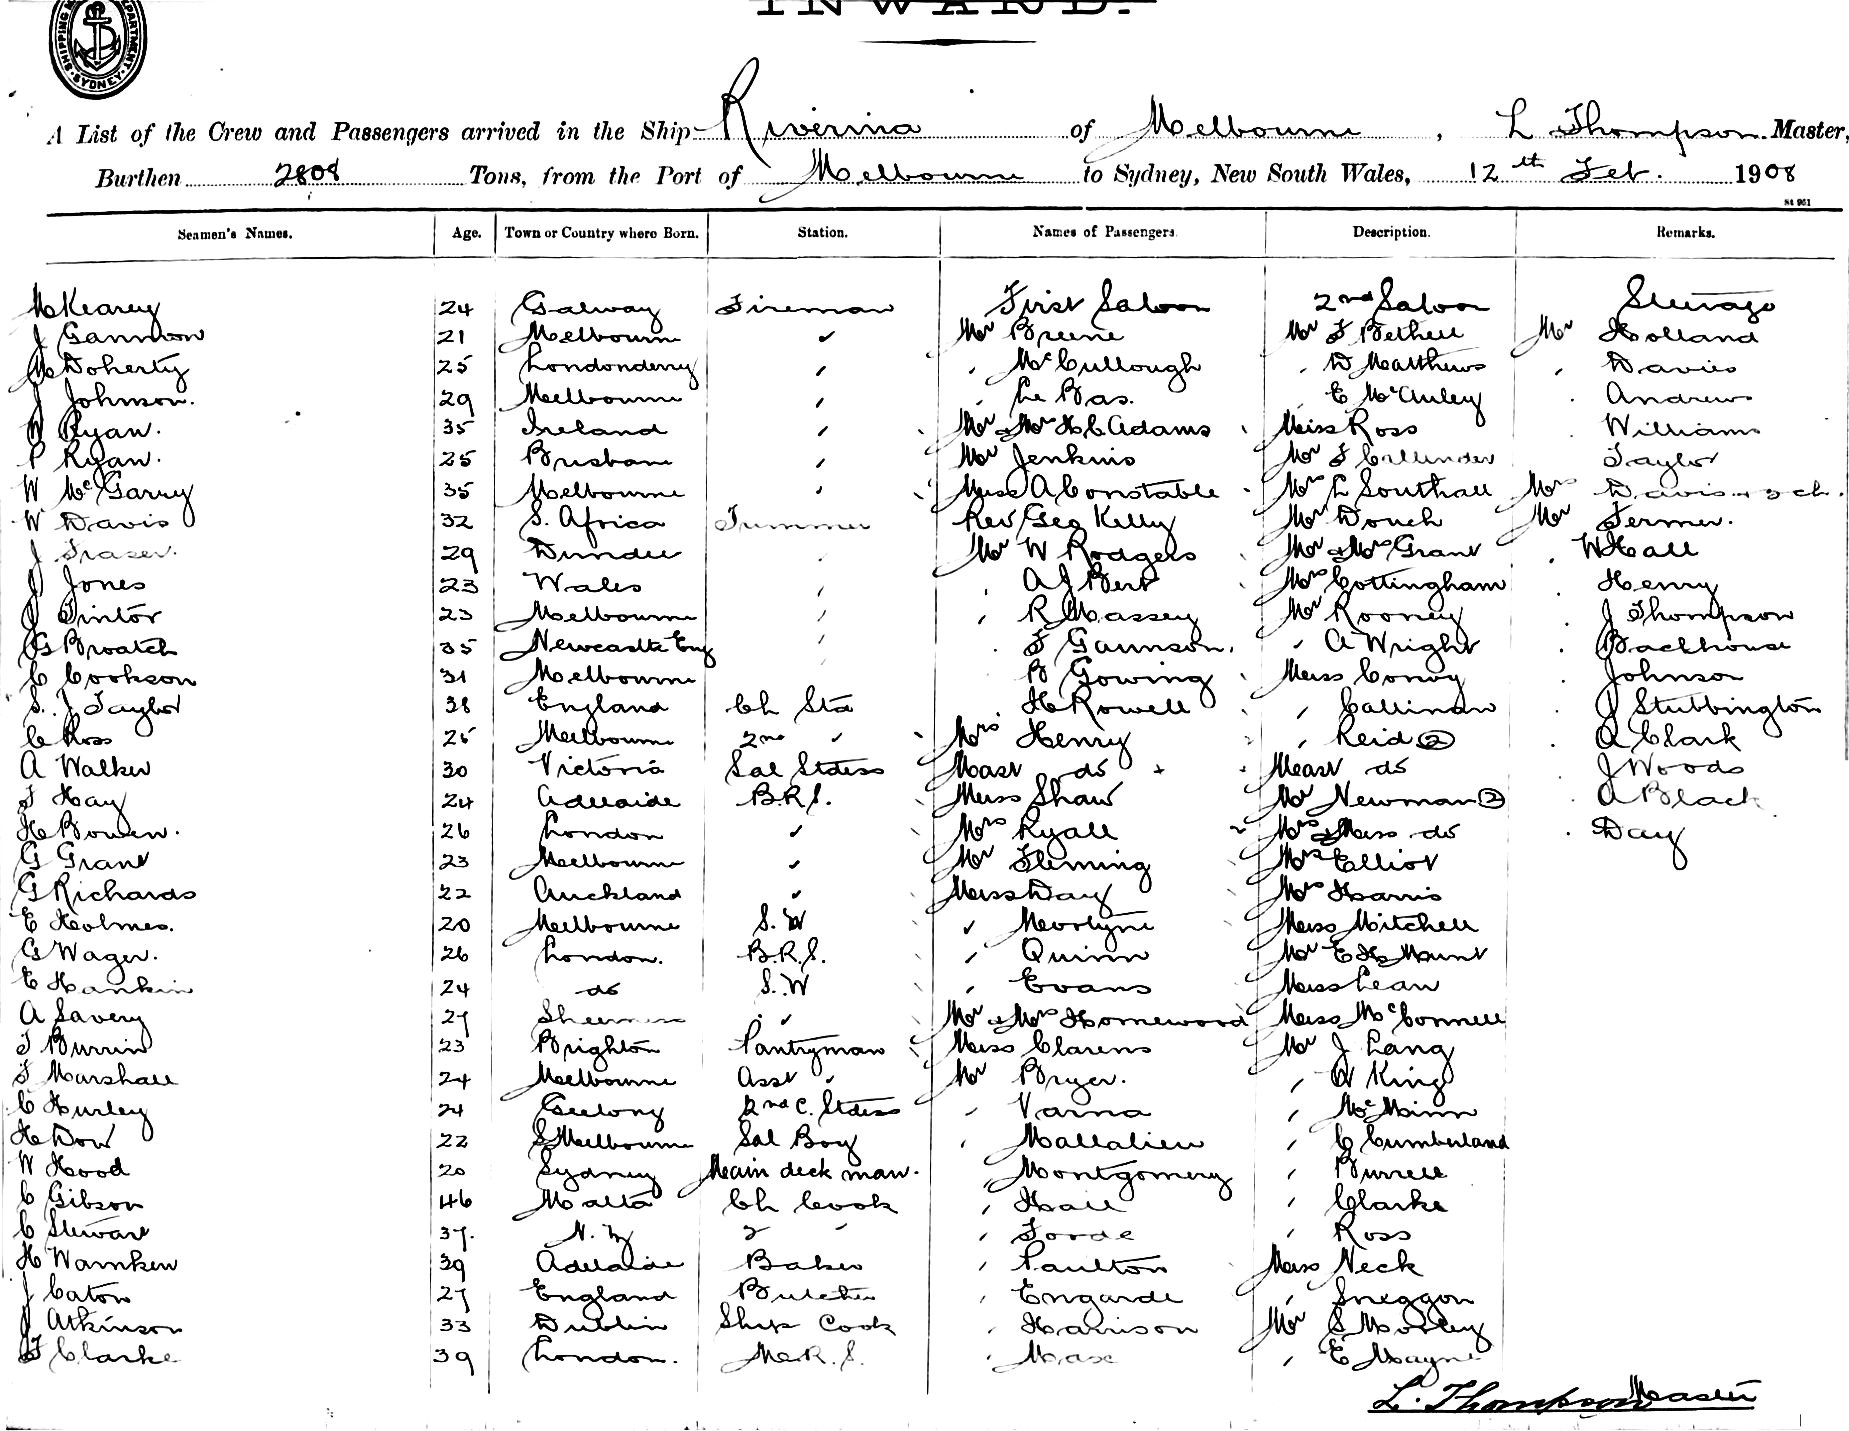 SHIPPING DEPARTMENT SYDNEY
INWARD.
A List of the Crew and Passengers arrived in the Ship Riverina of Melbourne, L Thompson Master,
Burthen 2808 Tons, from the Port of Melbourne to Sydney, New South Wales, 12th Feb. 1908
Seamen's Names. Age. Town or Country where Born. Station. Names of Passengers. Description. Remarks.
McKearey 24 Galway Fireman First Saloon 2nd Saloon Steerage
J Gannon 21 Melbourne " Mr Breene Mr F Bethell Mr Holland
M Doherty 25 Londonderry " " McCullough " D Matthews " Davies
J Johnson. 29 Melbourne " " Le Bas. " E McAuley " Andrews
Ryan. 35 Ireland " Mr & Mrs H C Adams Miss Ross " Williams
P Ryan. 25 Brisbane " Mr Jenkins Mr F Callender " Taylor
W McGarry 35 Melbourne " Miss A Constable Mrs L Southall Mrs Davis & 3 ch.
W Davis 32 S. Africa Trimmer Rev Geo Kelly Mr Douch Mr Fermer.
J Fraser. 29 Dundee " Mr W Rodgers Mr & Mrs Grant " W Hall
J Jones 23 Wales " " A J Bert Mrs Cottingham " Henry
J Tintor 23 Melbourne " " R Massey Mr Rooney " J Thompson
G Broatch 35 Newcastle Eng " " F Gaunson. " A Wright " Backhouse
C Cookson 31 Melbourne " " B Gowing Miss Convy " Johnson
S. J Taylor 38 England Ch Std " H Rowell " Callinan " J Stubbington
C Ross 25 Melbourne 2nd " Mrs Henry " Reid (2) " A Clark
A Walker 30 Victoria Sal Stdess Mast do Mast do " J Woods
F Hay 24 Adelaide B.R.S. Miss Shaw Mr Newman (2) " A Black
H Bowen. 26 London " Mrs Ryall Mrs & Miss do " Day
G Grant 23 Melbourne " Mr Fleming Mrs Elliot
G Richards 22 Auckland " Miss Day Mrs Harris
E Holmes. 20 Melbourne S.W " Miss Mitchell
G Wager. 26 London. B.R.S. " Quinn Mr E H Hunt
E Hankin 24 do S.W " Evans Miss Lean
A Savery 27 " Mr & Mrs Homewood Miss McConnell
F Burrin 23 Brighton Pantryman Miss Clarens Mr J Lang
F Marshall 24 Melbourne Asst " Mr Bryer. " A King
C Hurley 24 Geelong 2nd C. Stdess " Varna " McMinn
H Dow 22 S Melbourne Sal Boy " Mallalieu " C Cumberland
W Hood 20 Sydney Main deck man. " Montgomery " Burrell
C Gibson 46 Malta Ch Cook " Hall " Clarke
C Stewart 37. N.Z 2 " " Forde " Ross
H Warnken 39 Adelaide Baker " Paulton Miss Neck
J Caton 27 England Butcher " Engarde " Sneggon
J Atkinson 33 Dublin Ships Cook " Harrison Mr S Morley
F Clarke 39 London. M.R.S. " Mase " E Mayne
L. Thompson Master